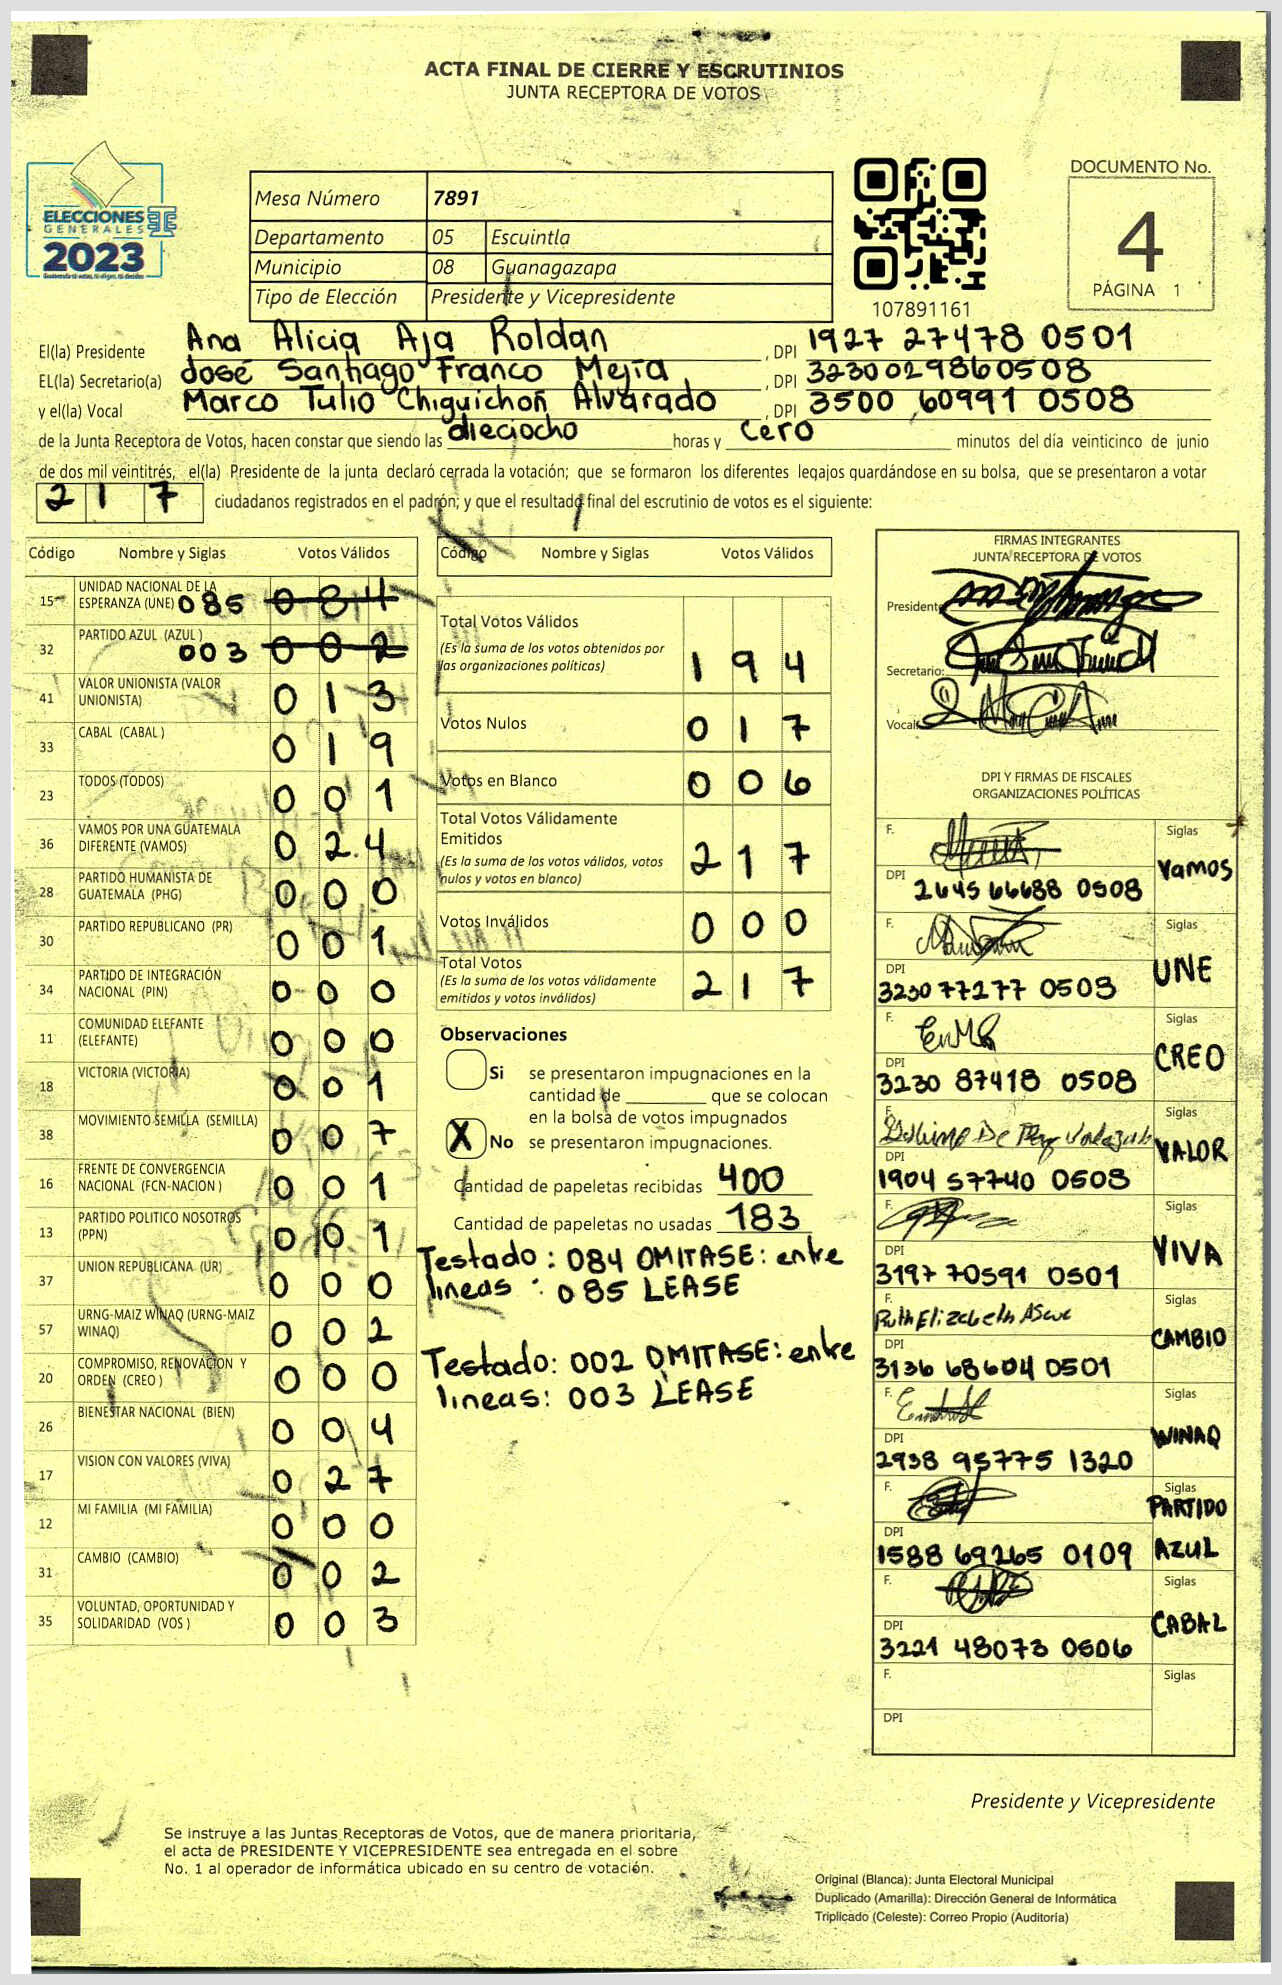 ACTA FINAL DE CIERRE Y ESCRUTINIOS
JUNTA RECEPTORA DE VOTOS
ELECCIONES
GENERALES
2023
Mesa Número 7891
Departamento 05 Escuintla
Municipio 08 Guanagazapa
Tipo de Elección Presidente y Vicepresidente
107891161
DOCUMENTO No.
4
PÁGINA 1
El(la) Presidente Ana Alicia Aja Roldan , DPI 1927 27478 0501
EL(la) Secretario(a) José Santiago Franco Mejía , DPI 3230 02986 0508
y el(la) Vocal Marco Tulio Chiguichon Alvarado , DPI 3500 60991 0508
de la Junta Receptora de Votos, hacen constar que siendo las dieciocho horas y cero minutos del día veinticinco de junio
de dos mil veintitrés, el(la) Presidente de la junta declaró cerrada la votación; que se formaron los diferentes legajos guardándose en su bolsa, que se presentaron a votar
217 ciudadanos registrados en el padrón; y que el resultado final del escrutinio de votos es el siguiente:
Código Nombre y Siglas Votos Válidos
15 UNIDAD NACIONAL DE LA
ESPERANZA (UNE) 085 084
32 PARTIDO AZUL (AZUL )
003 002
41 VALOR UNIONISTA (VALOR
UNIONISTA) 013
33 CABAL (CABAL ) 019
23 TODOS (TODOS) 001
36 VAMOS POR UNA GUATEMALA
DIFERENTE (VAMOS) 024
28 PARTIDO HUMANISTA DE
GUATEMALA (PHG) 000
30 PARTIDO REPUBLICANO (PR) 001
34 PARTIDO DE INTEGRACIÓN
NACIONAL (PIN) 000
11 COMUNIDAD ELEFANTE
(ELEFANTE) 000
18 VICTORIA (VICTORIA) 001
38 MOVIMIENTO SEMILLA (SEMILLA) 007
16 FRENTE DE CONVERGENCIA
NACIONAL (FCN-NACION ) 001
13 PARTIDO POLITICO NOSOTROS
(PPN) 001
37 UNION REPUBLICANA (UR) 000
57 URNG-MAIZ WINAQ (URNG-MAIZ
WINAQ) 002
20 COMPROMISO, RENOVACION Y
ORDEN (CREO ) 000
26 BIENESTAR NACIONAL (BIEN) 004
17 VISION CON VALORES (VIVA) 027
12 MI FAMILIA (MI FAMILIA) 000
31 CAMBIO (CAMBIO) 002
35 VOLUNTAD, OPORTUNIDAD Y
SOLIDARIDAD (VOS ) 003
Código Nombre y Siglas Votos Válidos
Total Votos Válidos
(Es la suma de los votos obtenidos por
las organizaciones políticas) 194
Votos Nulos 017
Votos en Blanco 006
Total Votos Válidamente
Emitidos
(Es la suma de los votos válidos, votos
nulos y votos en blanco) 217
Votos Inválidos 000
Total Votos
(Es la suma de los votos válidamente
emitidos y votos inválidos) 217
Observaciones
Si se presentaron impugnaciones en la
cantidad de ________ que se colocan
en la bolsa de votos impugnados
X No se presentaron impugnaciones.
Cantidad de papeletas recibidas 400
Cantidad de papeletas no usadas 183
Testado: 084 OMITASE: entre
lineas : 085 LEASE
Testado: 002 OMITASE: entre
lineas: 003 LEASE
FIRMAS INTEGRANTES
JUNTA RECEPTORA DE VOTOS
Presidente
Secretario:
Vocal:
DPI Y FIRMAS DE FISCALES
ORGANIZACIONES POLÍTICAS
F. Siglas
DPI 2645 66688 0508 Vamos
F. Siglas
DPI 3230 77277 0503 UNE
F. Siglas
DPI 3230 87418 0508 CREO
F. Siglas
DPI 1904 57740 0503 VALOR
F. Siglas
DPI 3197 70591 0501 VIVA
F. Ruth Elizabeth Siglas
DPI 3136 68604 0501 CAMBIO
F. Siglas
DPI 2938 95775 1320 WINAQ
F. Siglas
PARTIDO
DPI 1588 69265 0109 AZUL
F. Siglas
DPI 3221 48073 0506 CABAL
F. Siglas
DPI
Presidente y Vicepresidente
Se instruye a las Juntas Receptoras de Votos, que de manera prioritaria,
el acta de PRESIDENTE Y VICEPRESIDENTE sea entregada en el sobre
No. 1 al operador de informática ubicado en su centro de votación.
Original (Blanca): Junta Electoral Municipal
Duplicado (Amarilla): Dirección General de Informática
Triplicado (Celeste): Correo Propio (Auditoría)